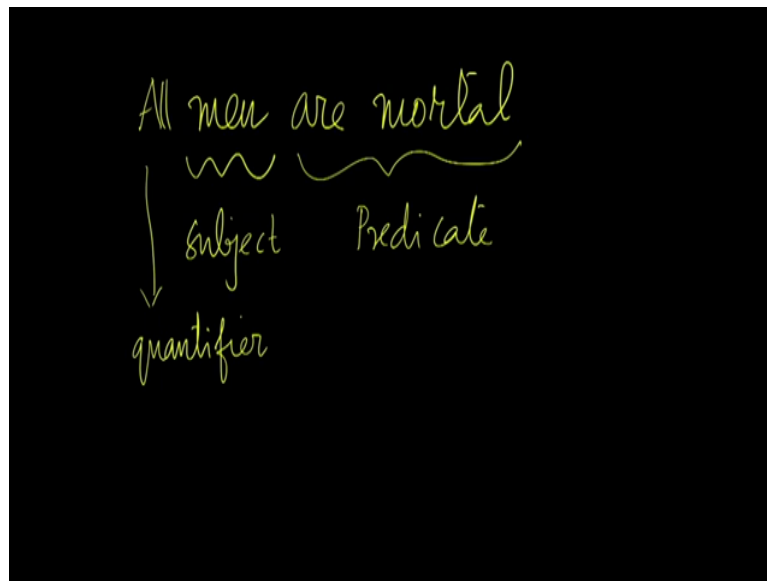 All men are mortal
subject Predicate
quantifier